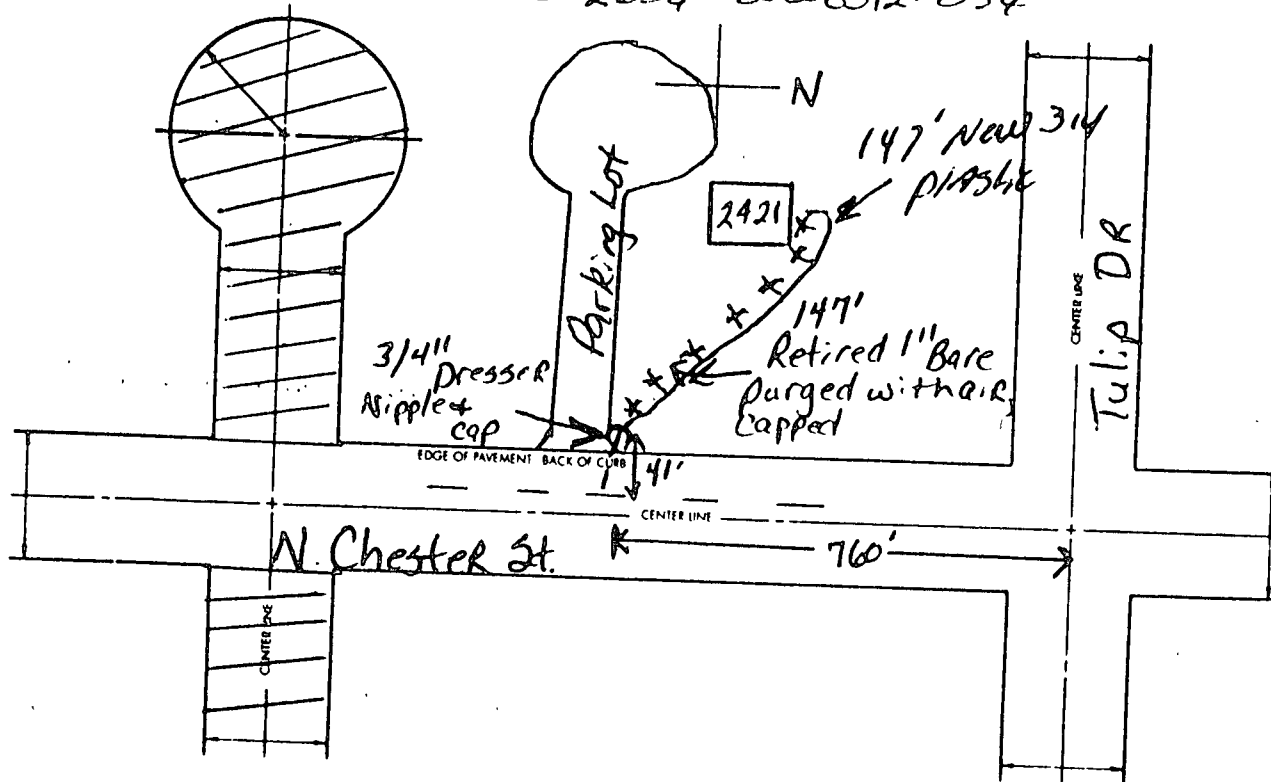 N
147' New 3/4
plastic
2421
Parking Lot
Tulip DR
CENTER LINE
147'
Retired 1" Bare
Purged with air,
Capped
3/4" Dresser
Nipple &
cap
EDGE OF PAVEMENT BACK OF CURB
41'
CENTER LINE
760'
N. Chester St.
CENTER LINE